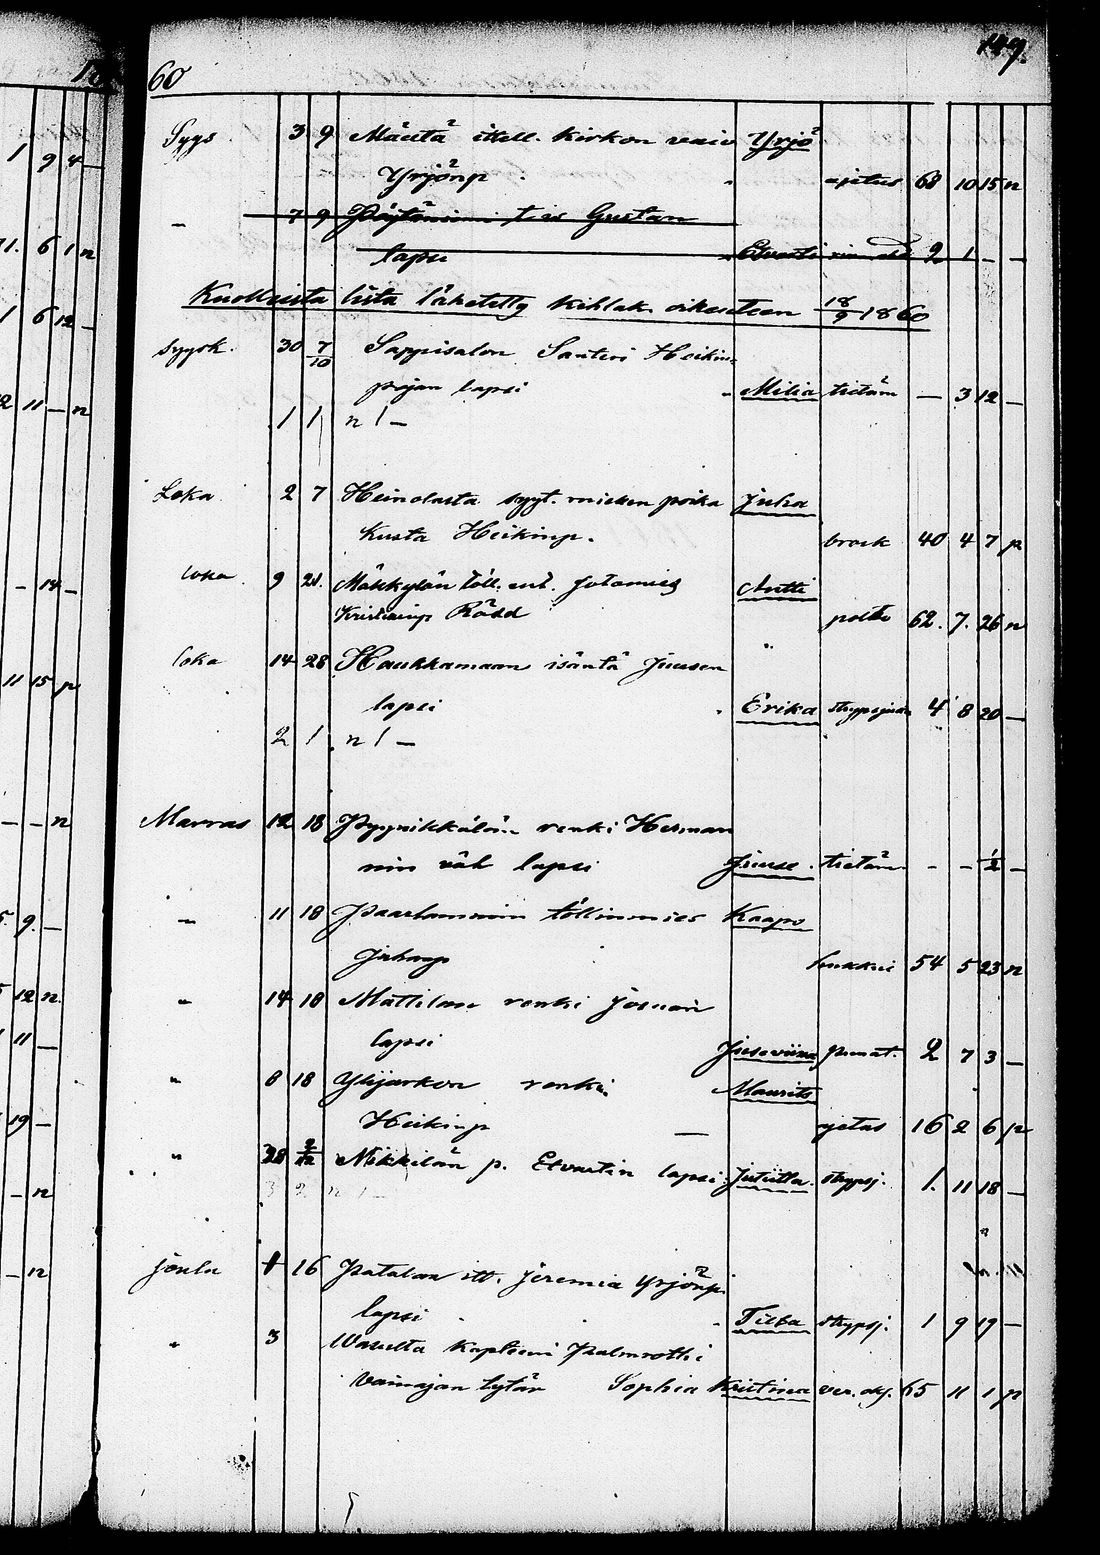 149.
60
Syys 3 9 Mäntä ittell. Kirkon vaiv Yrjö
Yrjönp. ajetus 68 10 15 n
" 7 9 Gustan
lapsi Edvarti 2 1 — —
Kuolleista lista lähetetty Kihlak. oikeuteen 18/9 1860
Syysk. 30 7/10 Sappisalon Santeri Heikin
pojan lapsi Milia tietäm — 3 12 —
1 1 n 1 —
Loka 2 7 Heinolasta syyt. miehen poika Juha
Kusta Heikinp. brock 40 4 7 p
loka 9 21. Mäkkylän töll. ent. sotamies Antti
Kristianp Rädd poltto 62. 7. 26 n
loka 14 28 Haukkamaan isäntä Juusen
lapsi Erika 4 8 20 —
2 1 n 1 —
Marras 12 18 Pyynikkälän renki Herman
nin väh lapsi Juuse tietäm — — 1/2 —
" 11 18 Paarlammin töllinmies Kaapo
Juhanp hukkui 54 5 23 n
" 14 18 Mattilan renki Josuan
lapsi Juseviina punat. 2 7 3 —
" 8 18 Ylijarkon renki Maurits
Heikinp — ajetas 16 2 6 p
" 28 2/12 Mikkilän p. Etvartin lapsi strypsj. 1. 11 18 —
3 2 n 1 —
joulu 1 16 Patalan itt. Jeremia Yrjönp.
lapsi Tilta strypsj. 1 9 19 —
" 3 Wasulta Kapteeni Palmrothi
vainajan tytär Sophia Kristina ver. 65 11 1 p